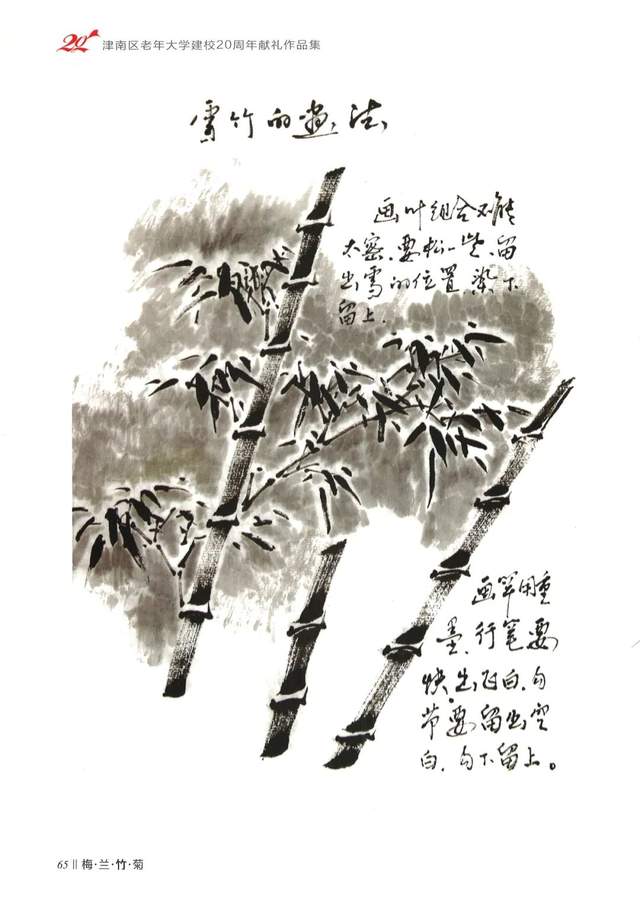 20
津南区老年大学建校20周年献礼作品集
雪竹的画法
画叶组合不能
太密.要松一些.留
出雪的位置染下
留上.
画竿用重
墨.行笔要
快.出飞白.勾
节要留出空
白.勾下留上。
65 || 梅·兰·竹·菊